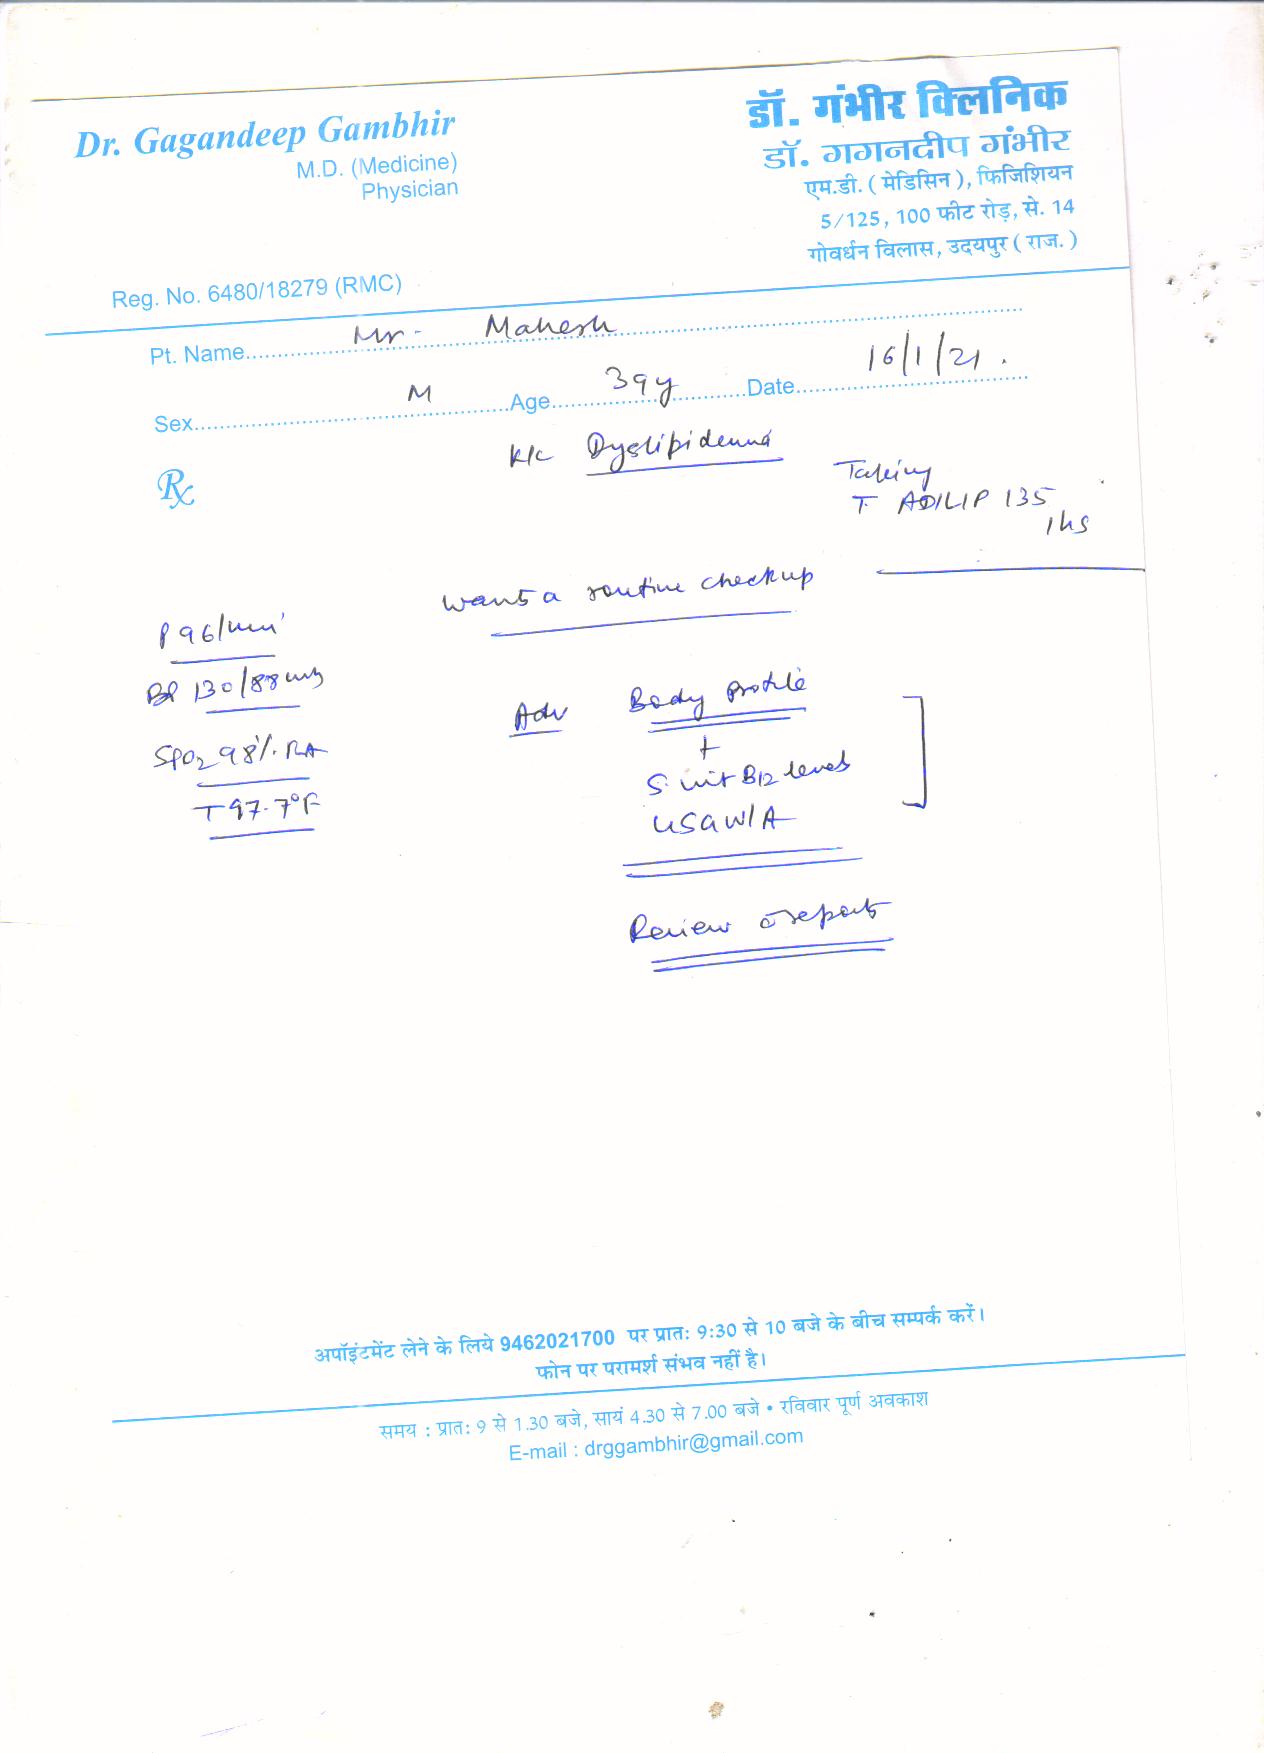 Dr. Gagandeep Gambhir
M.D. (Medicine)
Physician
Reg. No. 6480/18279 (RMC)
डॉ. गंभीर क्लिनिक
डॉ. गगनदीप गंभीर
एम.डी. ( मेडिसिन ), फिजिशियन
5/125, 100 फीट रोड़, से. 14
गोवर्धन विलास, उदयपुर ( राज. )
Pt. Name Mr. Mahesh
Sex M Age 39y Date 16/1/21.
Rx
K/c Dyslipidemia
Taking
T. ADILIP 135
1 hs
wants a routine checkup
P 96/min
BP 130/88 mmHg
SpO2 98% RA
T 97.7°F
Adv Body profile
+
S. vit B12 level
USG W/A
Review c̄ reports
अपॉइंटमेंट लेने के लिये 9462021700 पर प्रातः 9:30 से 10 बजे के बीच सम्पर्क करें।
फोन पर परामर्श संभव नहीं है।
समय : प्रातः 9 से 1.30 बजे, सायं 4.30 से 7.00 बजे • रविवार पूर्ण अवकाश
E-mail : drggambhir@gmail.com